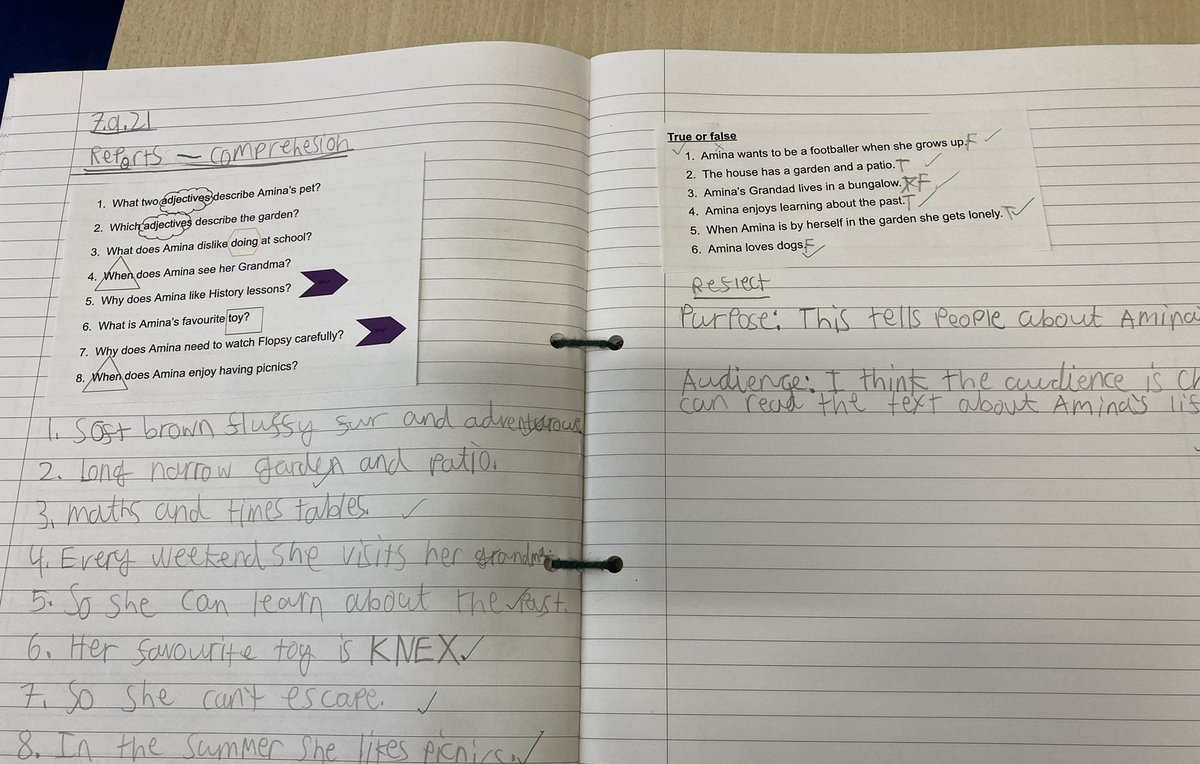 7.9.21
Reports - comprehesion
1. What two adjectives describe Amina's pet?
2. Which adjectives describe the garden?
3. What does Amina dislike doing at school?
4. When does Amina see her Grandma?
5. Why does Amina like History lessons?
6. What is Amina's favourite toy?
7. Why does Amina need to watch Flopsy carefully?
8. When does Amina enjoy having picnics?
1. Soft brown fluffy fur and adventurous
2. Long narrow garden and patio.
3. maths and times tables.
4. Every weekend she visits her grandma.
5. So she can learn about the past.
6. Her favourite toy is KNEX.
7. So she can't escape.
8. In the summer she likes picnics.
True or false
1. Amina wants to be a footballer when she grows up. F
2. The house has a garden and a patio. T
3. Amina's Grandad lives in a bungalow. F
4. Amina enjoys learning about the past. T
5. When Amina is by herself in the garden she gets lonely. T
6. Amina loves dogs. F
Reflect
Purpose: This tells people about Amina
Audience: I think the audience is
can read the text about Amina's